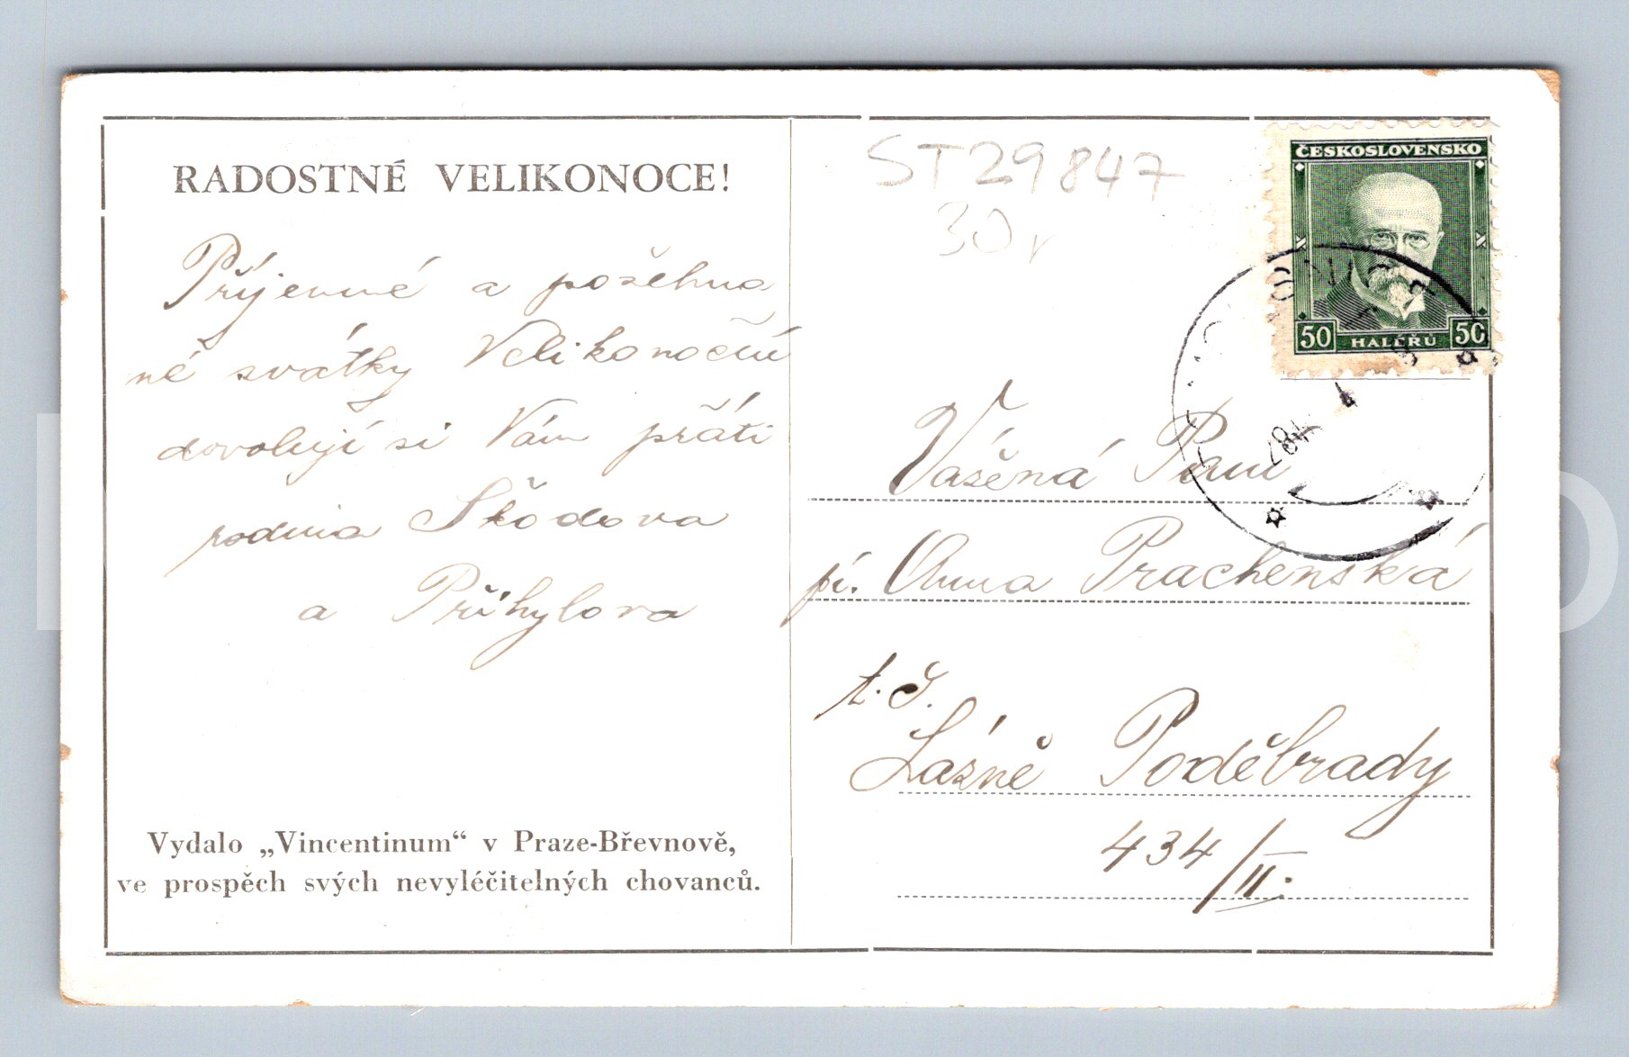 RADOSTNÉ VELIKONOCE!
Příjemné a požehna
né svátky Velikonoční
dovolují si Vám přáti
rodina Škodova
a Přihylova
Vydalo „Vincentinum“ v Praze-Břevnově,
ve prospěch svých nevyléčitelných chovanců.
ST29847
30,
ČESKOSLOVENSKO
50 HALÉRŮ 50
Vážená Paní
pí. Anna Prachenská
t. č.
Lázně Poděbrady
434/II.